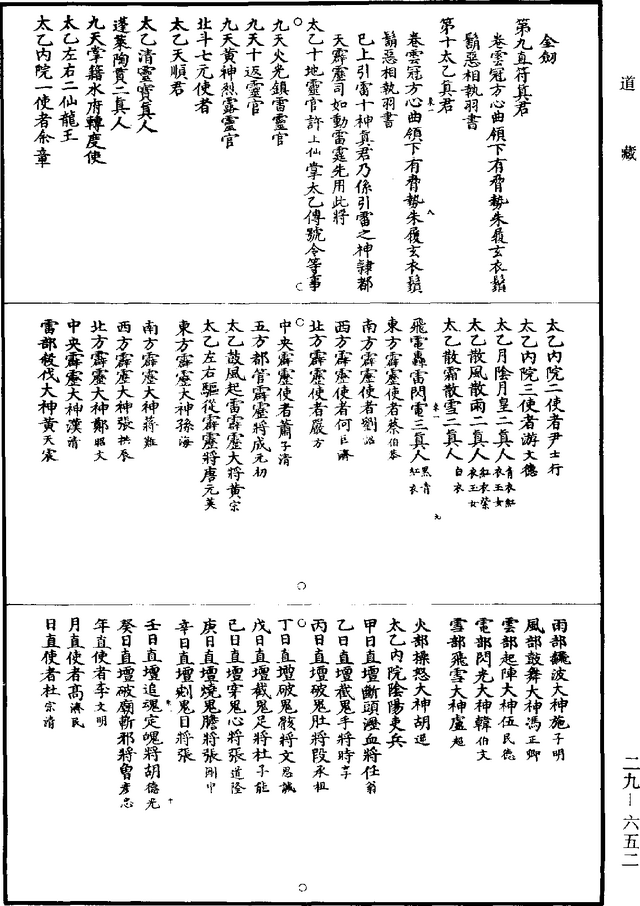 道藏
金劒
第九直符真君
卷雲冠方心曲領下有脅勢朱履玄衣鬚
鬍惡相執羽書
第十太乙真君
卷雲冠方心曲領下有脅勢朱履玄衣鬚
鬍惡相執羽書
已上引雷十神真君乃係引雷之神隷都
天霹靂司如動雷霆先用此將
太乙十地靈官許上仙掌太乙傳號令等事
九天火光鎮雷靈官
九天十返靈官
九天黃神烈露靈官
北斗七元使者
太乙天順君
太乙清靈寶真人
蓬萊陶賈二真人
九天掌籍水府轉度使
太乙左右二仙龍王
太乙內院一使者余章
太乙內院二使者尹士行
太乙內院三使者游文德
太乙月陰月皇二真人青衣紅衣玉女
太乙散風散雨二真人紅衣紫衣玉女
太乙散霜散雪二真人白衣
飛電轟雷閃電三真人黑青紅衣
東方霹靂使者蔡伯
南方霹靂使者劉
西方霹靂使者何巨濟
北方霹靂使者嚴方
中央霹靂使者蕭子清
五方都管霹靂將成元初
太乙鼓風起雷霹靂大將黃宗
太乙左右驅從霹靂將唐元英
東方霹靂大神孫海
南方霹靂大神蔣
西方霹靂大神張拱辰
北方霹靂大神鄭昭文
中央霹靂大神漢清
雷部殺伐大神黃天震
雨部飜波大神施子明
風部鼓舞大神馮正卿
雲部起陣大神伍民德
電部閃光大神韓伯文
雪部飛雪大神盧超
火部操怒大神胡
太乙內院陰陽吏兵
甲日直壇斷頭瀝血將任翁
乙日直壇截鬼手將時亨
丙日直壇破鬼肚將段承祖
丁日直壇破鬼骸將文思誠
戊日直壇截鬼足將杜子能
已日直壇穿鬼心將張道隆
庚日直壇燒鬼膽將張剛中
辛日直壇剜鬼目將張
壬日直壇追魂定魄將胡德光
癸日直壇破廟斬邪將魯彥忠
年直使者李文明
月直使者高濟民
日直使者杜宗清
二九—六五二